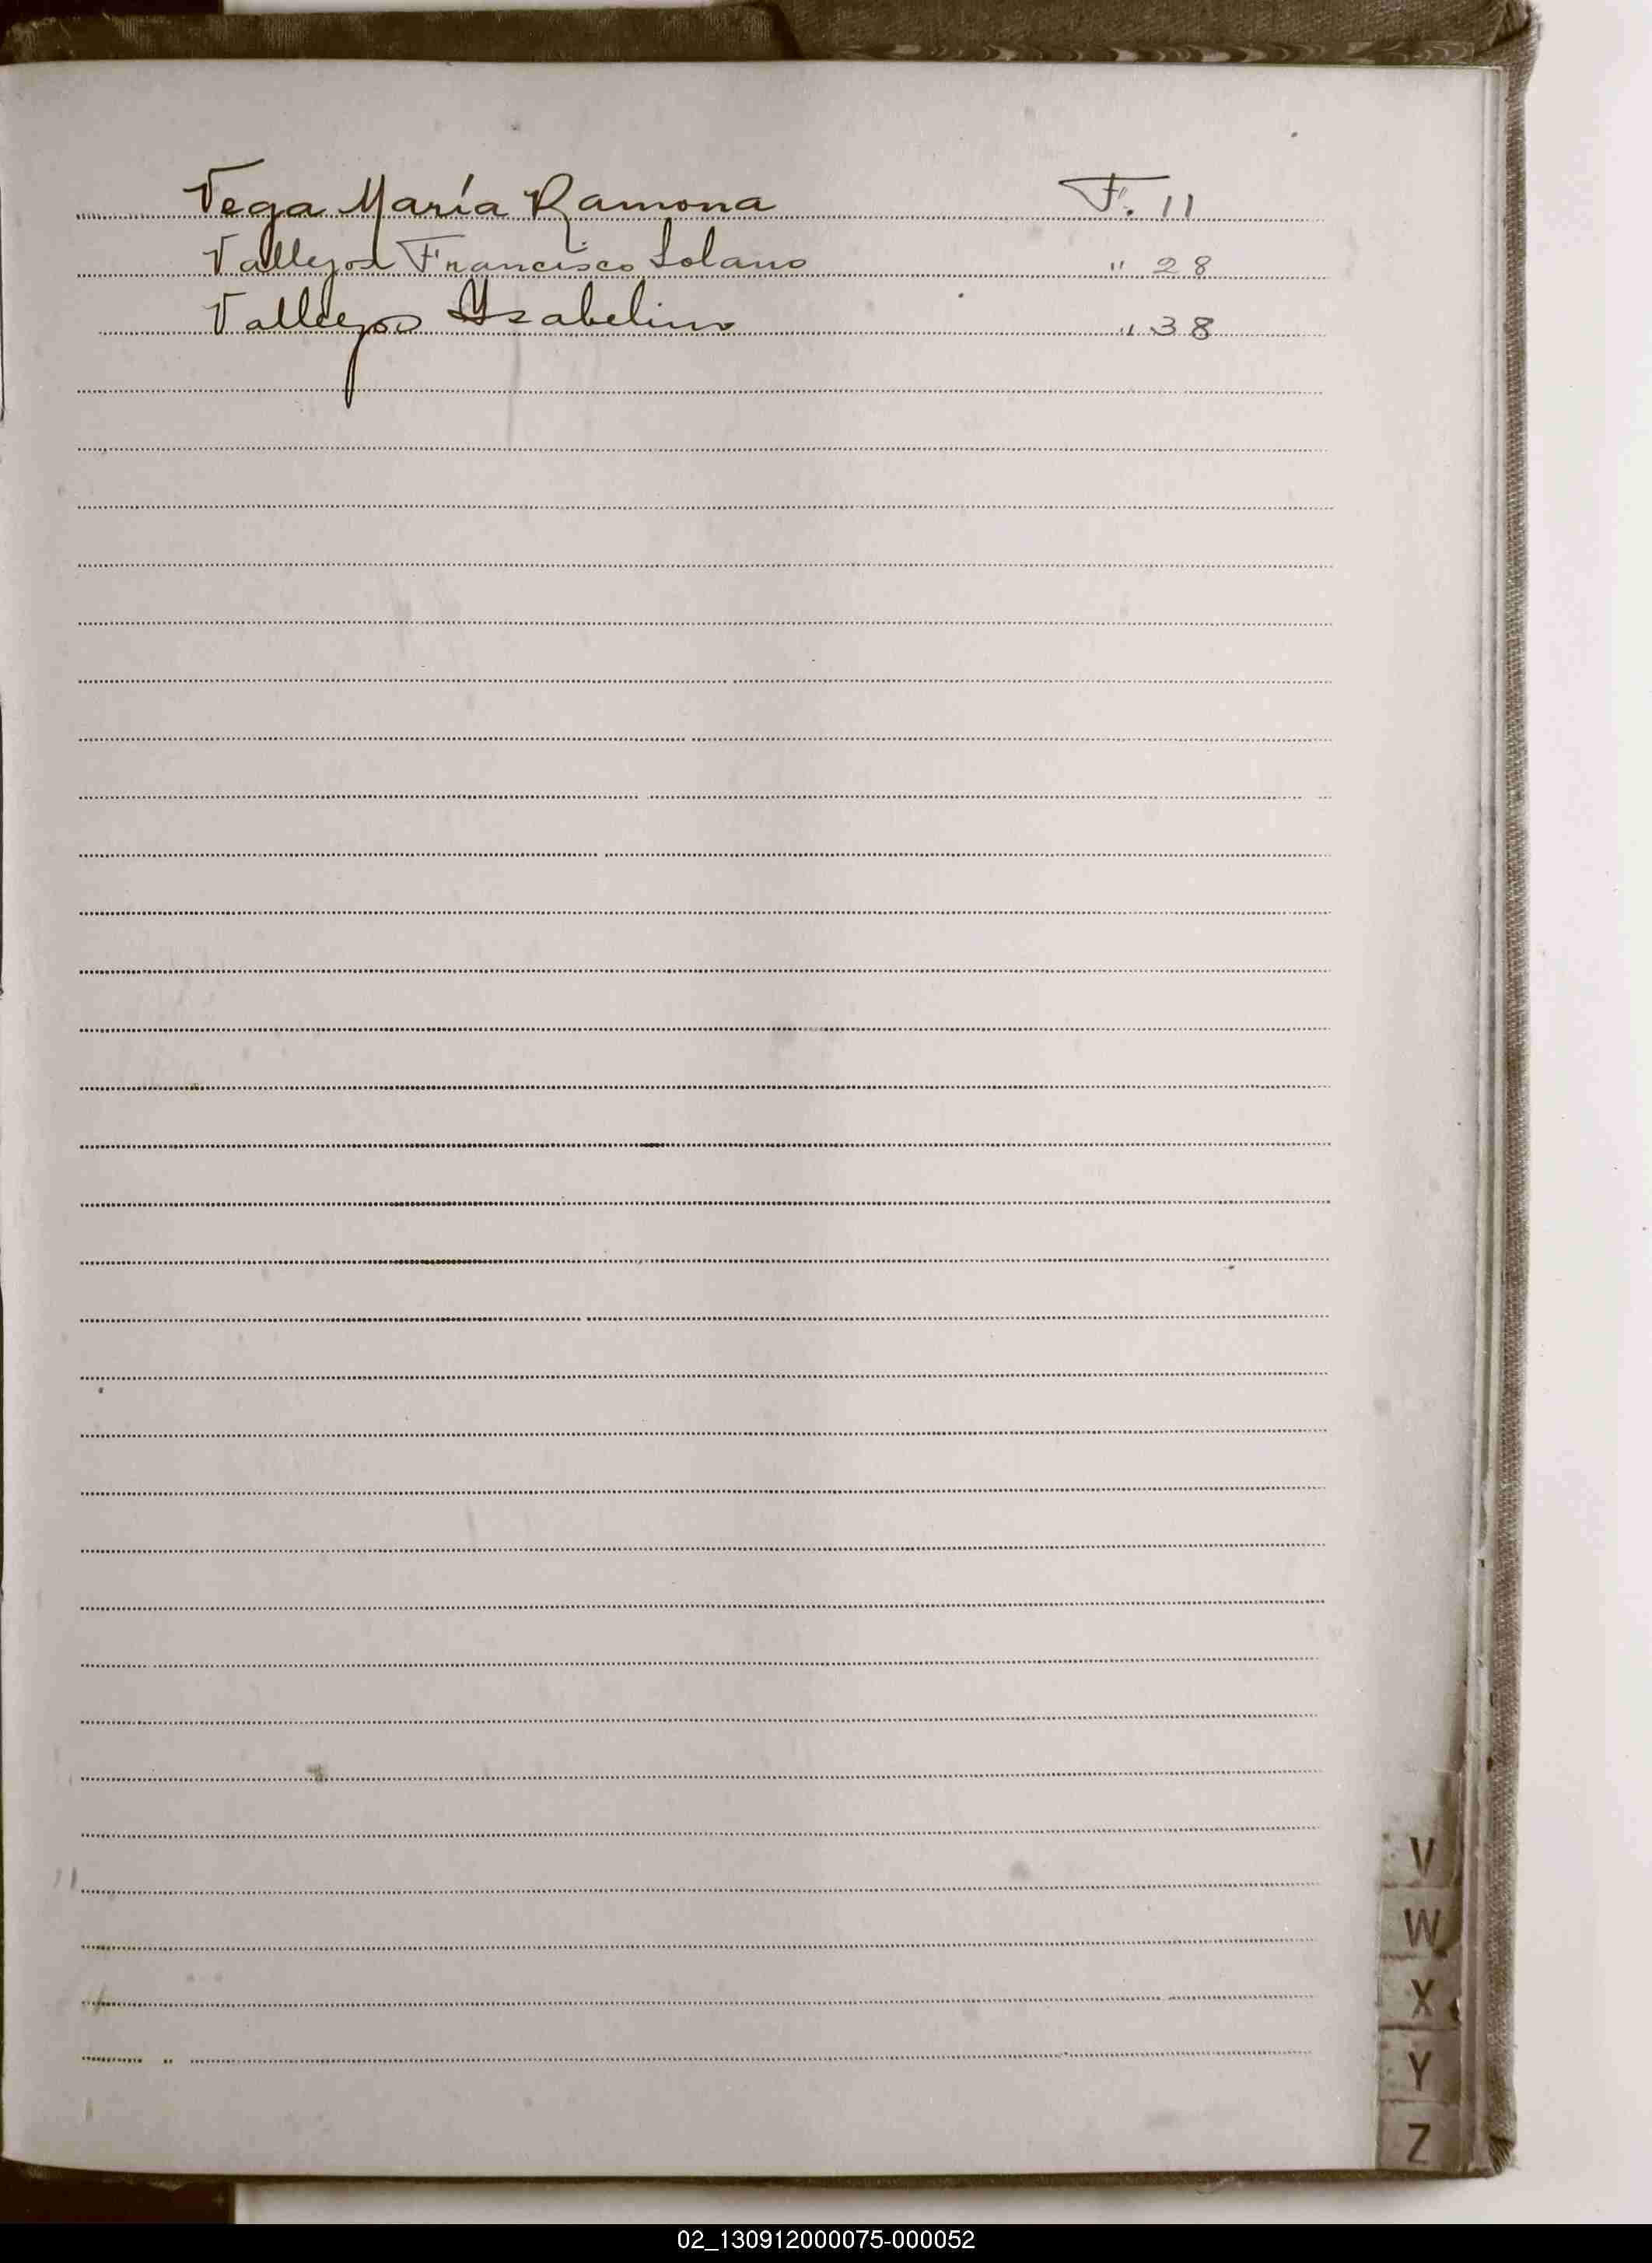 Vega María Ramona F. 11
Vallejos Francisco Solano " 28
Vallejos Ysabelino " 38
V
W
X
Y
Z
02_130912000075-000052